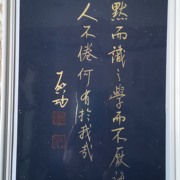 默而識之學而不厭誨
人不倦何有於我哉
启功